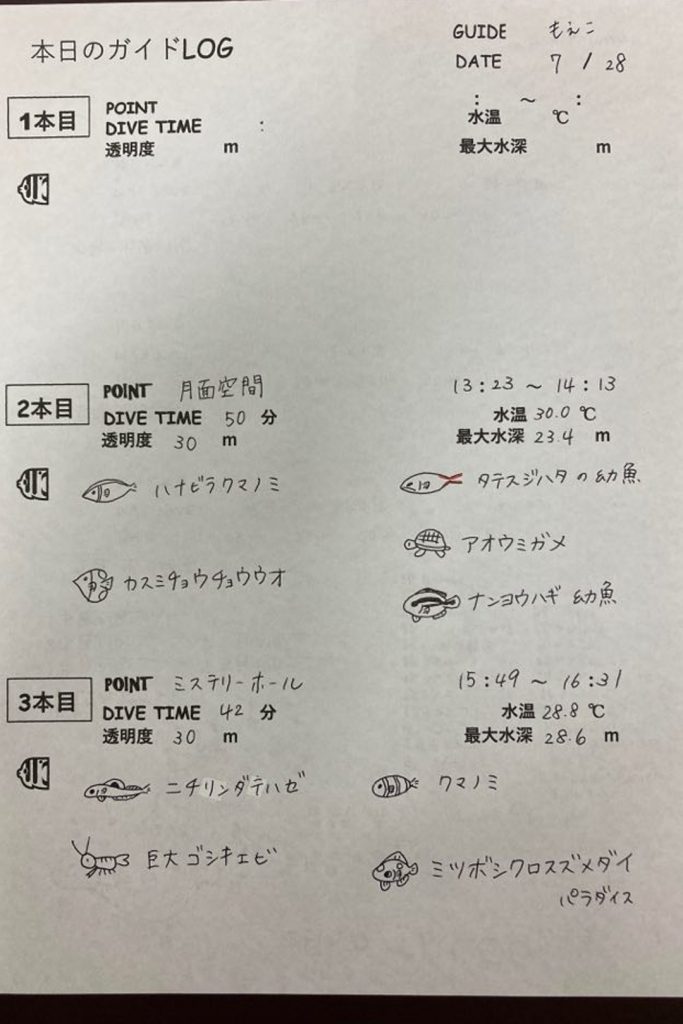 本日のガイドLOG
GUIDE もえこ
DATE 7 / 28
1本目
POINT
: ～ :
DIVE TIME :
水温 ℃
透明度 m
最大水深 m
2本目
POINT 月面空間
13:23 ～ 14:13
DIVE TIME 50 分
水温 30.0 ℃
透明度 30 m
最大水深 23.4 m
ハナビラクマノミ
タテスジハタの幼魚
アオウミガメ
カスミチョウチョウウオ
ナンヨウハギ 幼魚
3本目
POINT ミステリーホール
15:49 ～ 16:31
DIVE TIME 42 分
水温 28.8 ℃
透明度 30 m
最大水深 28.6 m
ニチリンダテハゼ
クマノミ
巨大ゴシキエビ
ミツボシクロスズメダイ
パラダイス